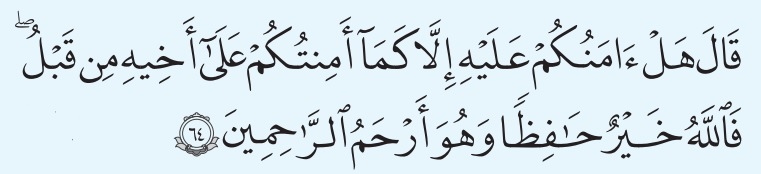 قَالَ هَلْ ءَامَنُكُمْ عَلَيْهِ إِلَّا كَمَآ أَمِنتُكُمْ عَلَىٰٓ أَخِيهِ مِن قَبْلُ ۖ
فَٱللَّهُ خَيْرٌ حَـٰفِظًا وَهُوَ أَرْحَمُ ٱلرَّٰحِمِينَ ٦٤